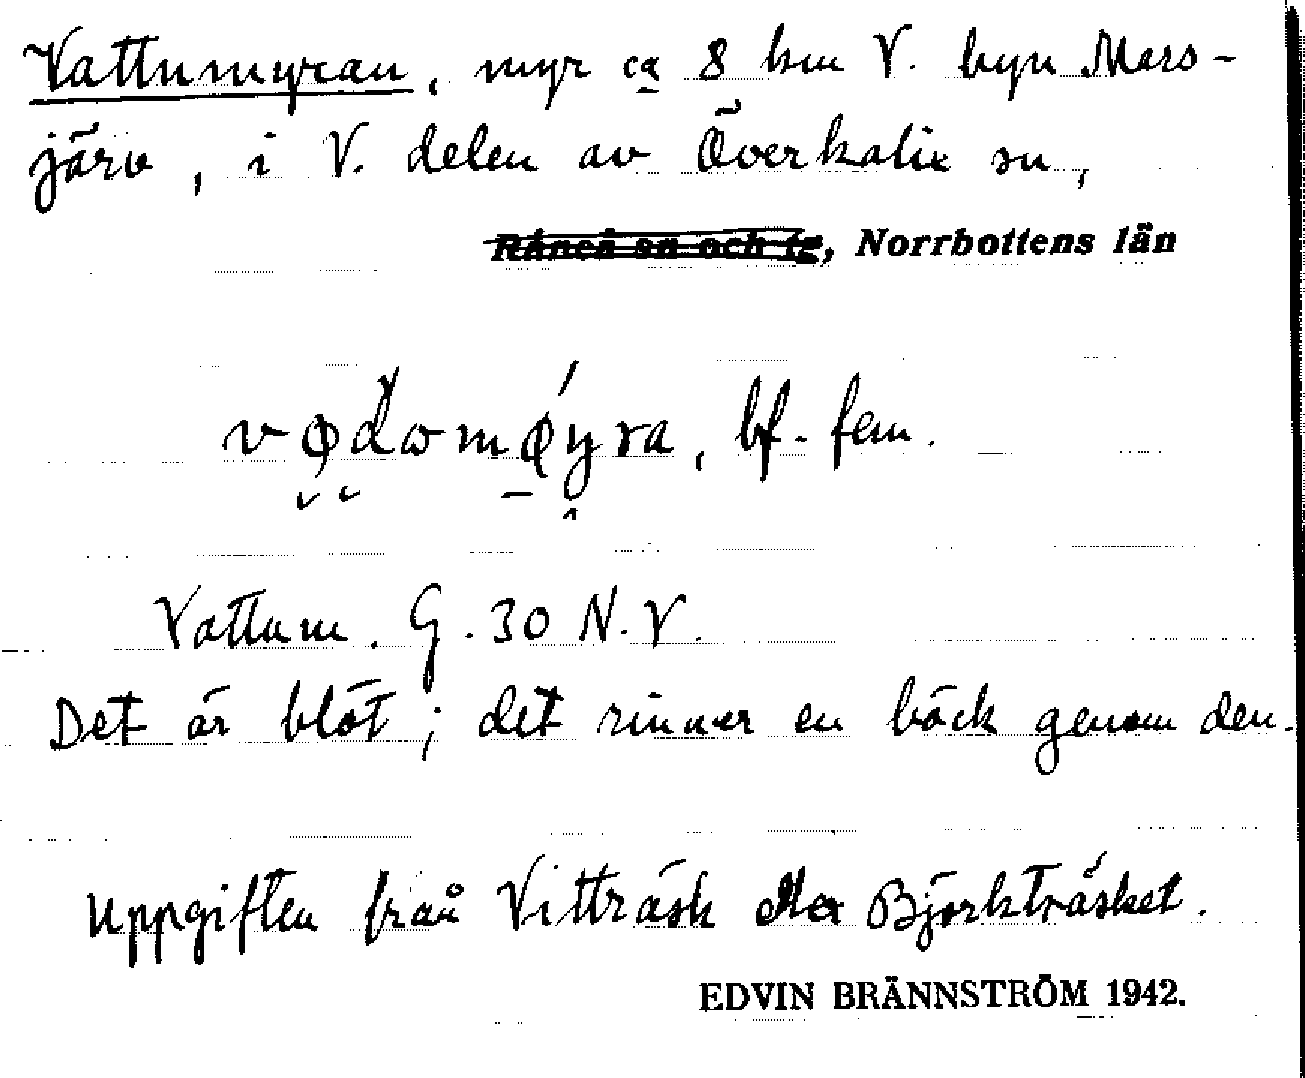 Vattumyran, myr ca 8 km V. byn Mors-
järv, i V. delen av Överkalix sn,
Råneå sn och tg, Norrbottens län
bf. fem.
Vattum. G. 30 N.V.
Det är blöt; det rinner en bäck genom den.
Uppgiften från Vitträsk eller Björkträsket.
EDVIN BRÄNNSTRÖM 1942.